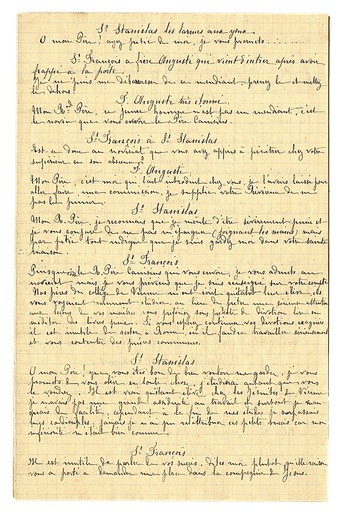 St Stanislas les larmes aux yeux
O mon Père ! ayez pitié de moi, je vous promets......
St François à frère Auguste qui vient d'entrer après avoir
frappé à la porte.
de ce mendiant, prenez le et mettez
le dehors.
F. Auguste très étonné
Mon Rd Père, ce jeune homme n'est pas un mendiant, c'est
le novice que vous le Père Canisius.
St François à St Stanislas
Est-ce donc au noviciat que vous avez appris à pénétrer chez votre
supérieur en son absence ?
F. Auguste
Mon Père, c'est moi qui l'ai introduit chez vous, je l'avais laissé pour
aller faire une commission, je supplie votre Révérence de ne
pas le punir.
St Stanislas
Mon R. Père, je reconnais que je mérite d'être sévèrement puni et
je vous conjure de ne pas m'épargner (joignant les mains) mais
par pitié tout indigne que je suis gardez moi dans votre sainte
maison.
St François
Puisque le R. Père Canisius qui vous envoie, je vous admets au
noviciat, mais je vous préviens que je suis renseigné sur votre compte
Nos pères du collège de Vienne m'ont écrit
vous au lieu de prêter une sérieuse attention
aux leçons de vos maîtres vous préférez de dévotion lire ou
méditer des livres pieux. Si vous espérez continuer vos dévotions
il est inutile de rester à Rome, où il faudra travailler sérieusement
et vous contenter des prières communes.
St Stanislas
O mon Père, que vous êtes bon de bien vouloir me garder, je vous
promets de vous obéir en toute chose, j'étudierai autant que vous
le voudrez. Il est vrai qu'étant élève chez les Jésuites de Vienne
je n'avais pas assez au travail et surtout je man
quais de facilité, cependant à la fin de mes études je surpassais
mes condisciples, jamais je n'ai pu m'attribuer ces petits succès car mon
infériorité m'était bien connue.
St François
Il est inutile de parler de vos succès, dites moi plutôt quelle raison
vous a porté à demander une place dans la compagnie de Jésus.